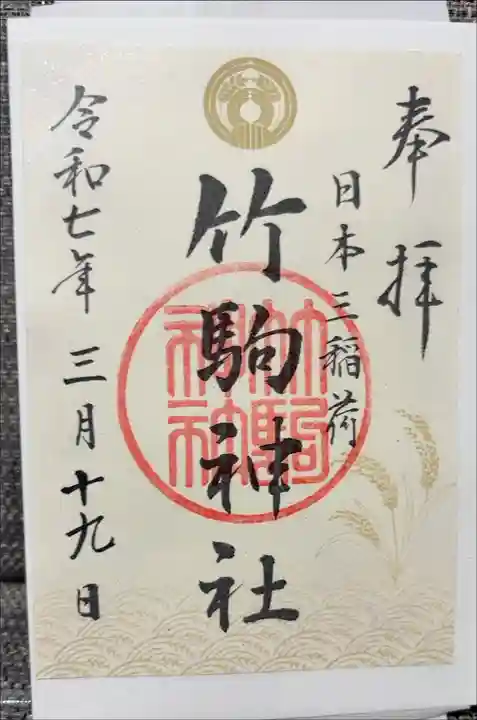 奉拝
日本三稲荷
竹駒神社
竹駒神社
令和七年 三月十九日